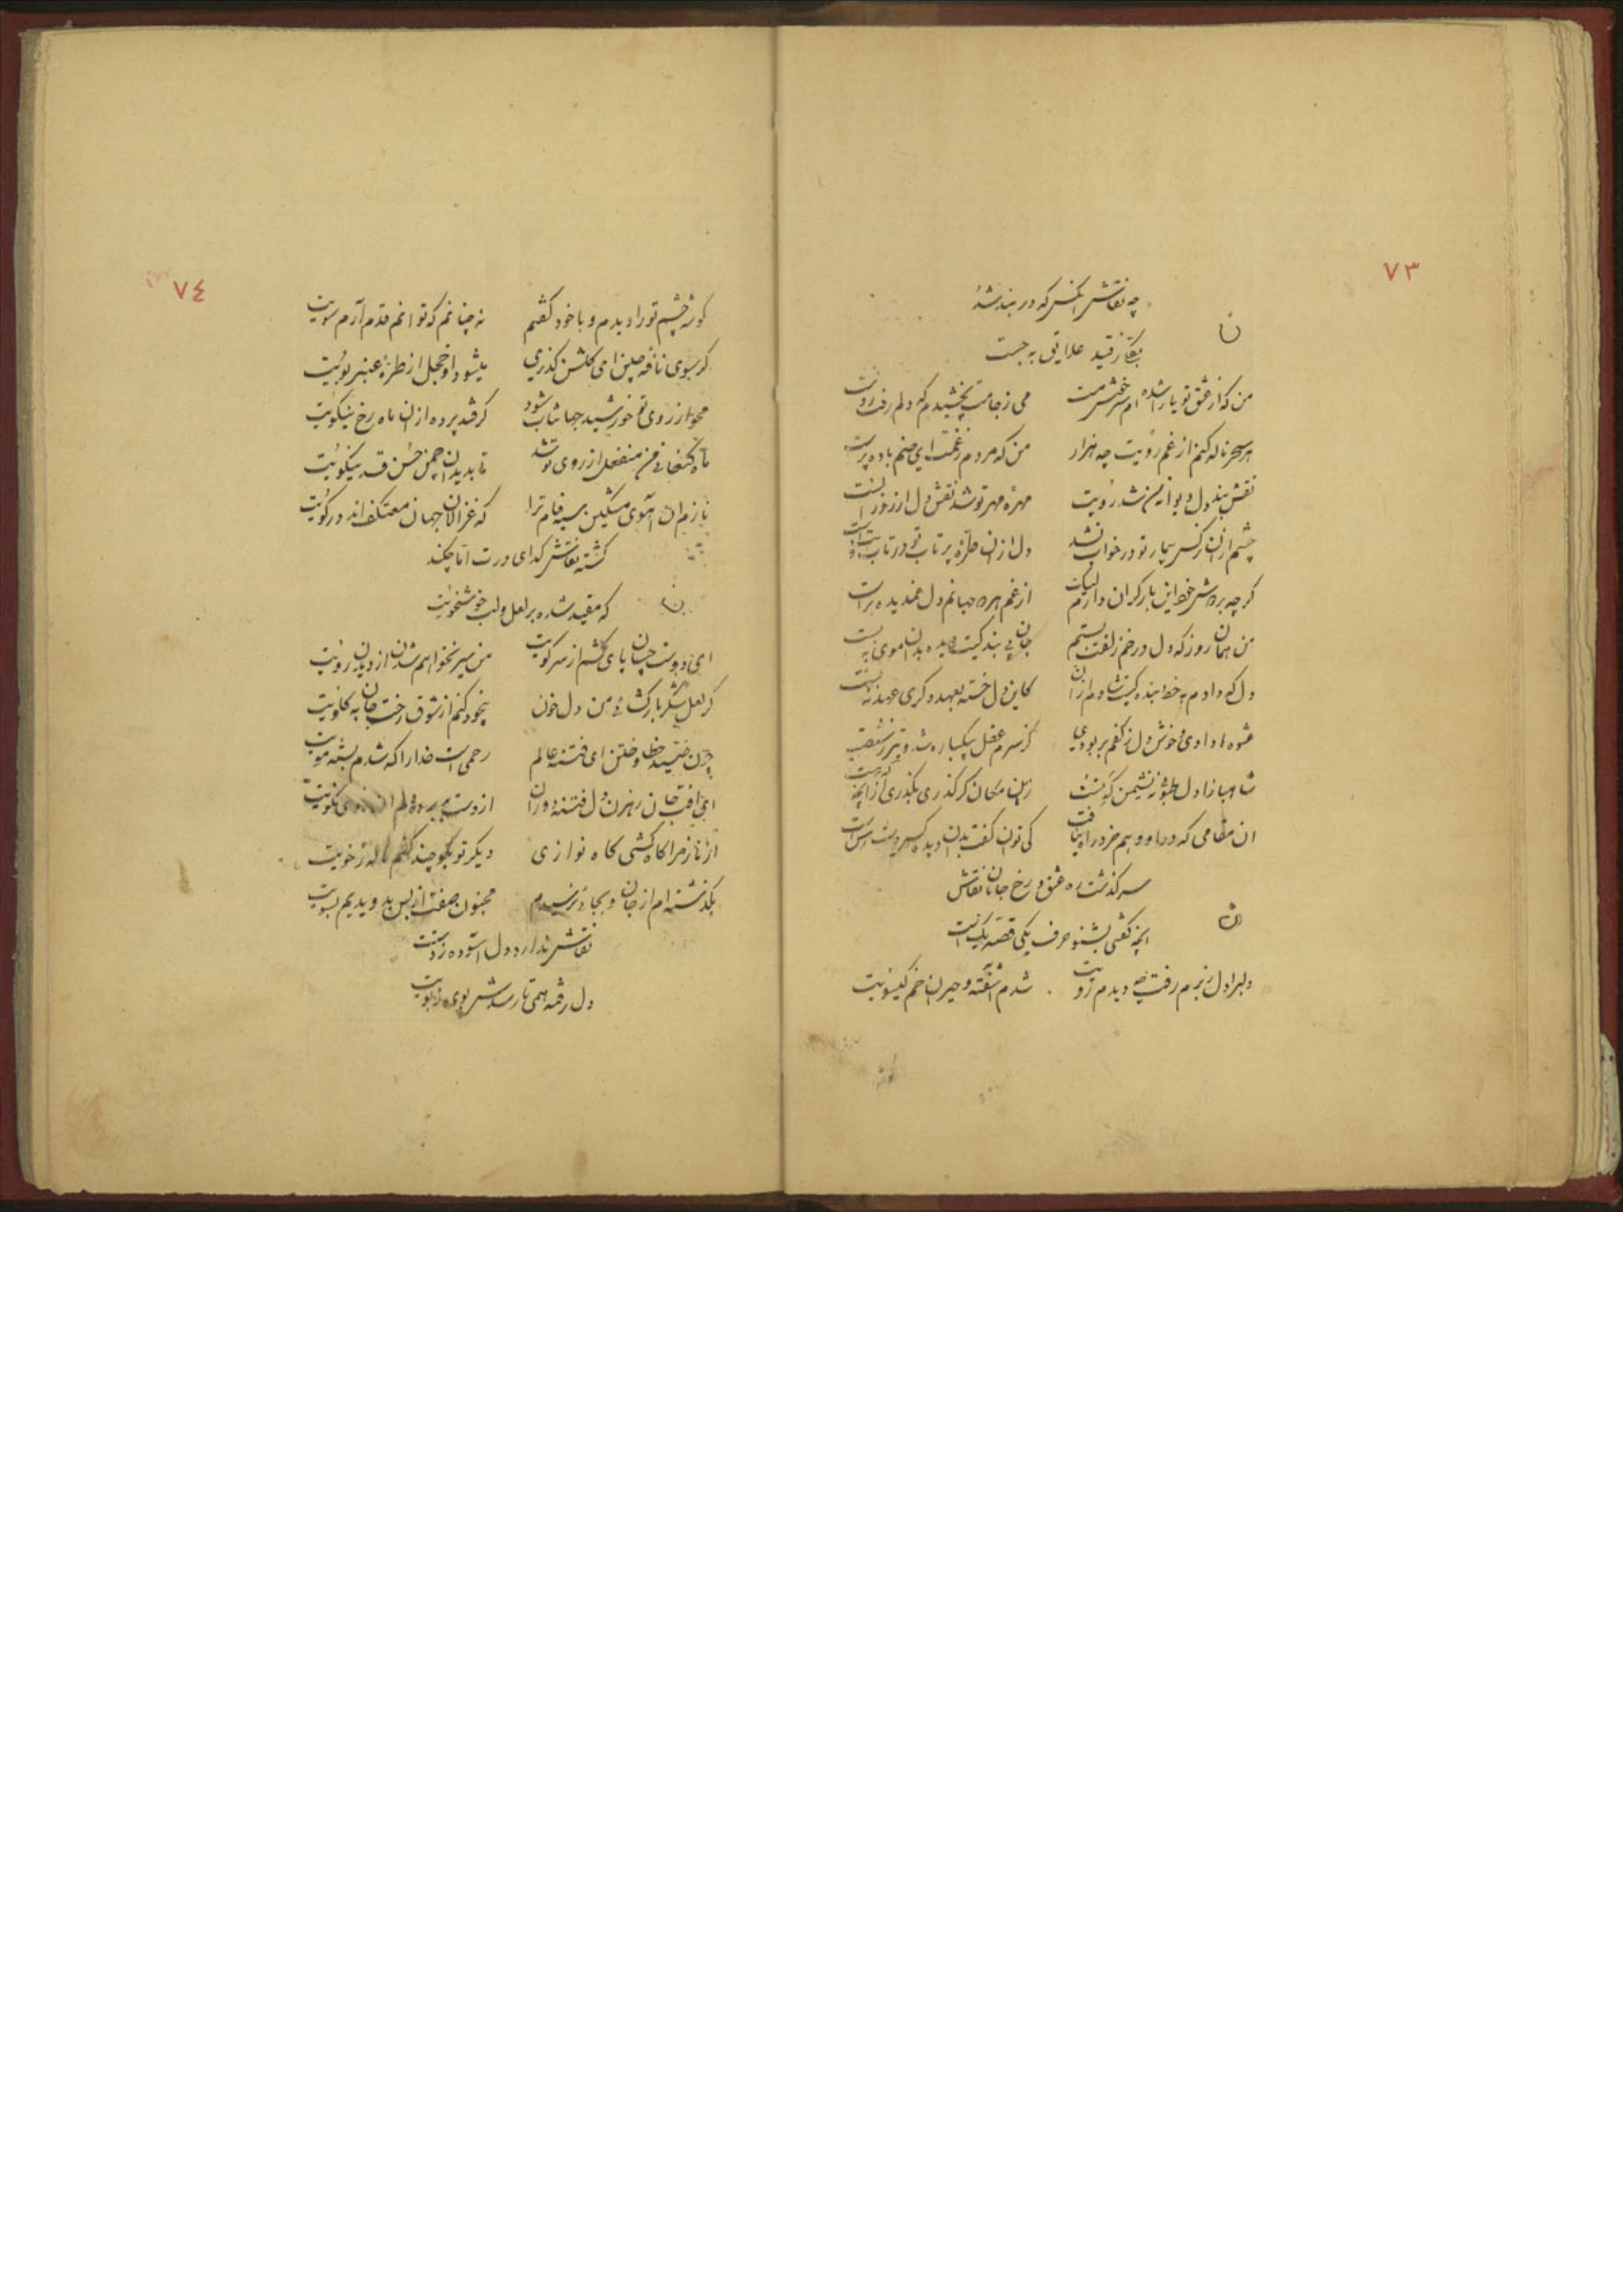 ٧٣
چه نقاش آنکس که در بند شد
ز قید علایق به جست
ن
من که از عشق تو یارا شده ام سرخوش مست
می ز جامت بچشیدم که دلم رفت ز دست
هر سحر ناله کنم از غم رویت چه هزار
من که مردم ز غمت ای صنم باده پرست
نقش بند دل دیوانه من شد رویت
مهره مهر تو شد نقش دل از روز الست
چشم از آن نرکس بیمار تو در خواب نشد
دل از آن طره پر تاب تو در تاب
کرچه بر دوش خط این بار کران دارم لیک
از غم هر دو جهانم دل غمدیده برست
من همان روز که دل در خم زلفت بستم
جان پی بندکیت دیده بدان موی به بست
دل که دادم به خط بنده کیت شادم از آن
کاین دل خسته بعهد دکری عهد نه بست
عشوه ها دادی و خوش دل ز کفم بربودی
کز سرم عقل بیکباره شد و
شاهبازا دل
زین مکان کر کذری بکذری از آنچه که هست
ان مقامی که در او وهم خرد راه نیافت
کی توان کفت بدان دیده
سر کذشت ره عشق و رخ جانان نقاش
آنچه کفتی بشنو حرف یکی قصه یک است
ن
دلبرا دل ز برم رفت چه دیدم رویت
شدم آشفته و حیران خم کیسویت
٧٤
کوشه چشم تو را دیدم و با خود کفتم
نه چنانم که توانم قدم آرم سویت
کر بسوی نافه چین ای کلشن کذری
میشود او خجل از طره عنبر بویت
محو از روی تو خورشید جهانتاب شود
کر فتد پرده از آن ماه رخ نیکویت
ماه کنعانی من منفعل از روی تو شد
تا بدید آن چمن حسن قد نیکویت
نازم ان آهوی مشکین سیه فام ترا
که غزالان جهان معتکف اند در کویت
کشته نقاش کدای درت اما چکند
که مقید شده بر لعل و لب خوشخویت
ن
ای دوست چسان پای کشم از سر کویت
من سیر نخواهم شدن از دیدن رویت
کر لعل شکر بار کشائی من دل خون
بیخود کنم از شوق رخت جان به کلویت
ختن ای فتنه عالم
رحمی است خدا را که شدم بسته مویت
ای آفت جان رهزن دل فتنه دوران
از دست ببرده دلم آن روی نکویت
از ناز مرا کاه کشی کاه نوازی
دیکر تو بکو چند کشم ناله ز خویت
بکذشته ام از جان و بجائی نرسیدم
مجنون صفت از بس بدویدیم بسویت
نقاش ندارد دل آسوده ز دستت
دل رفته همی تا رسدش بوی ز بویت